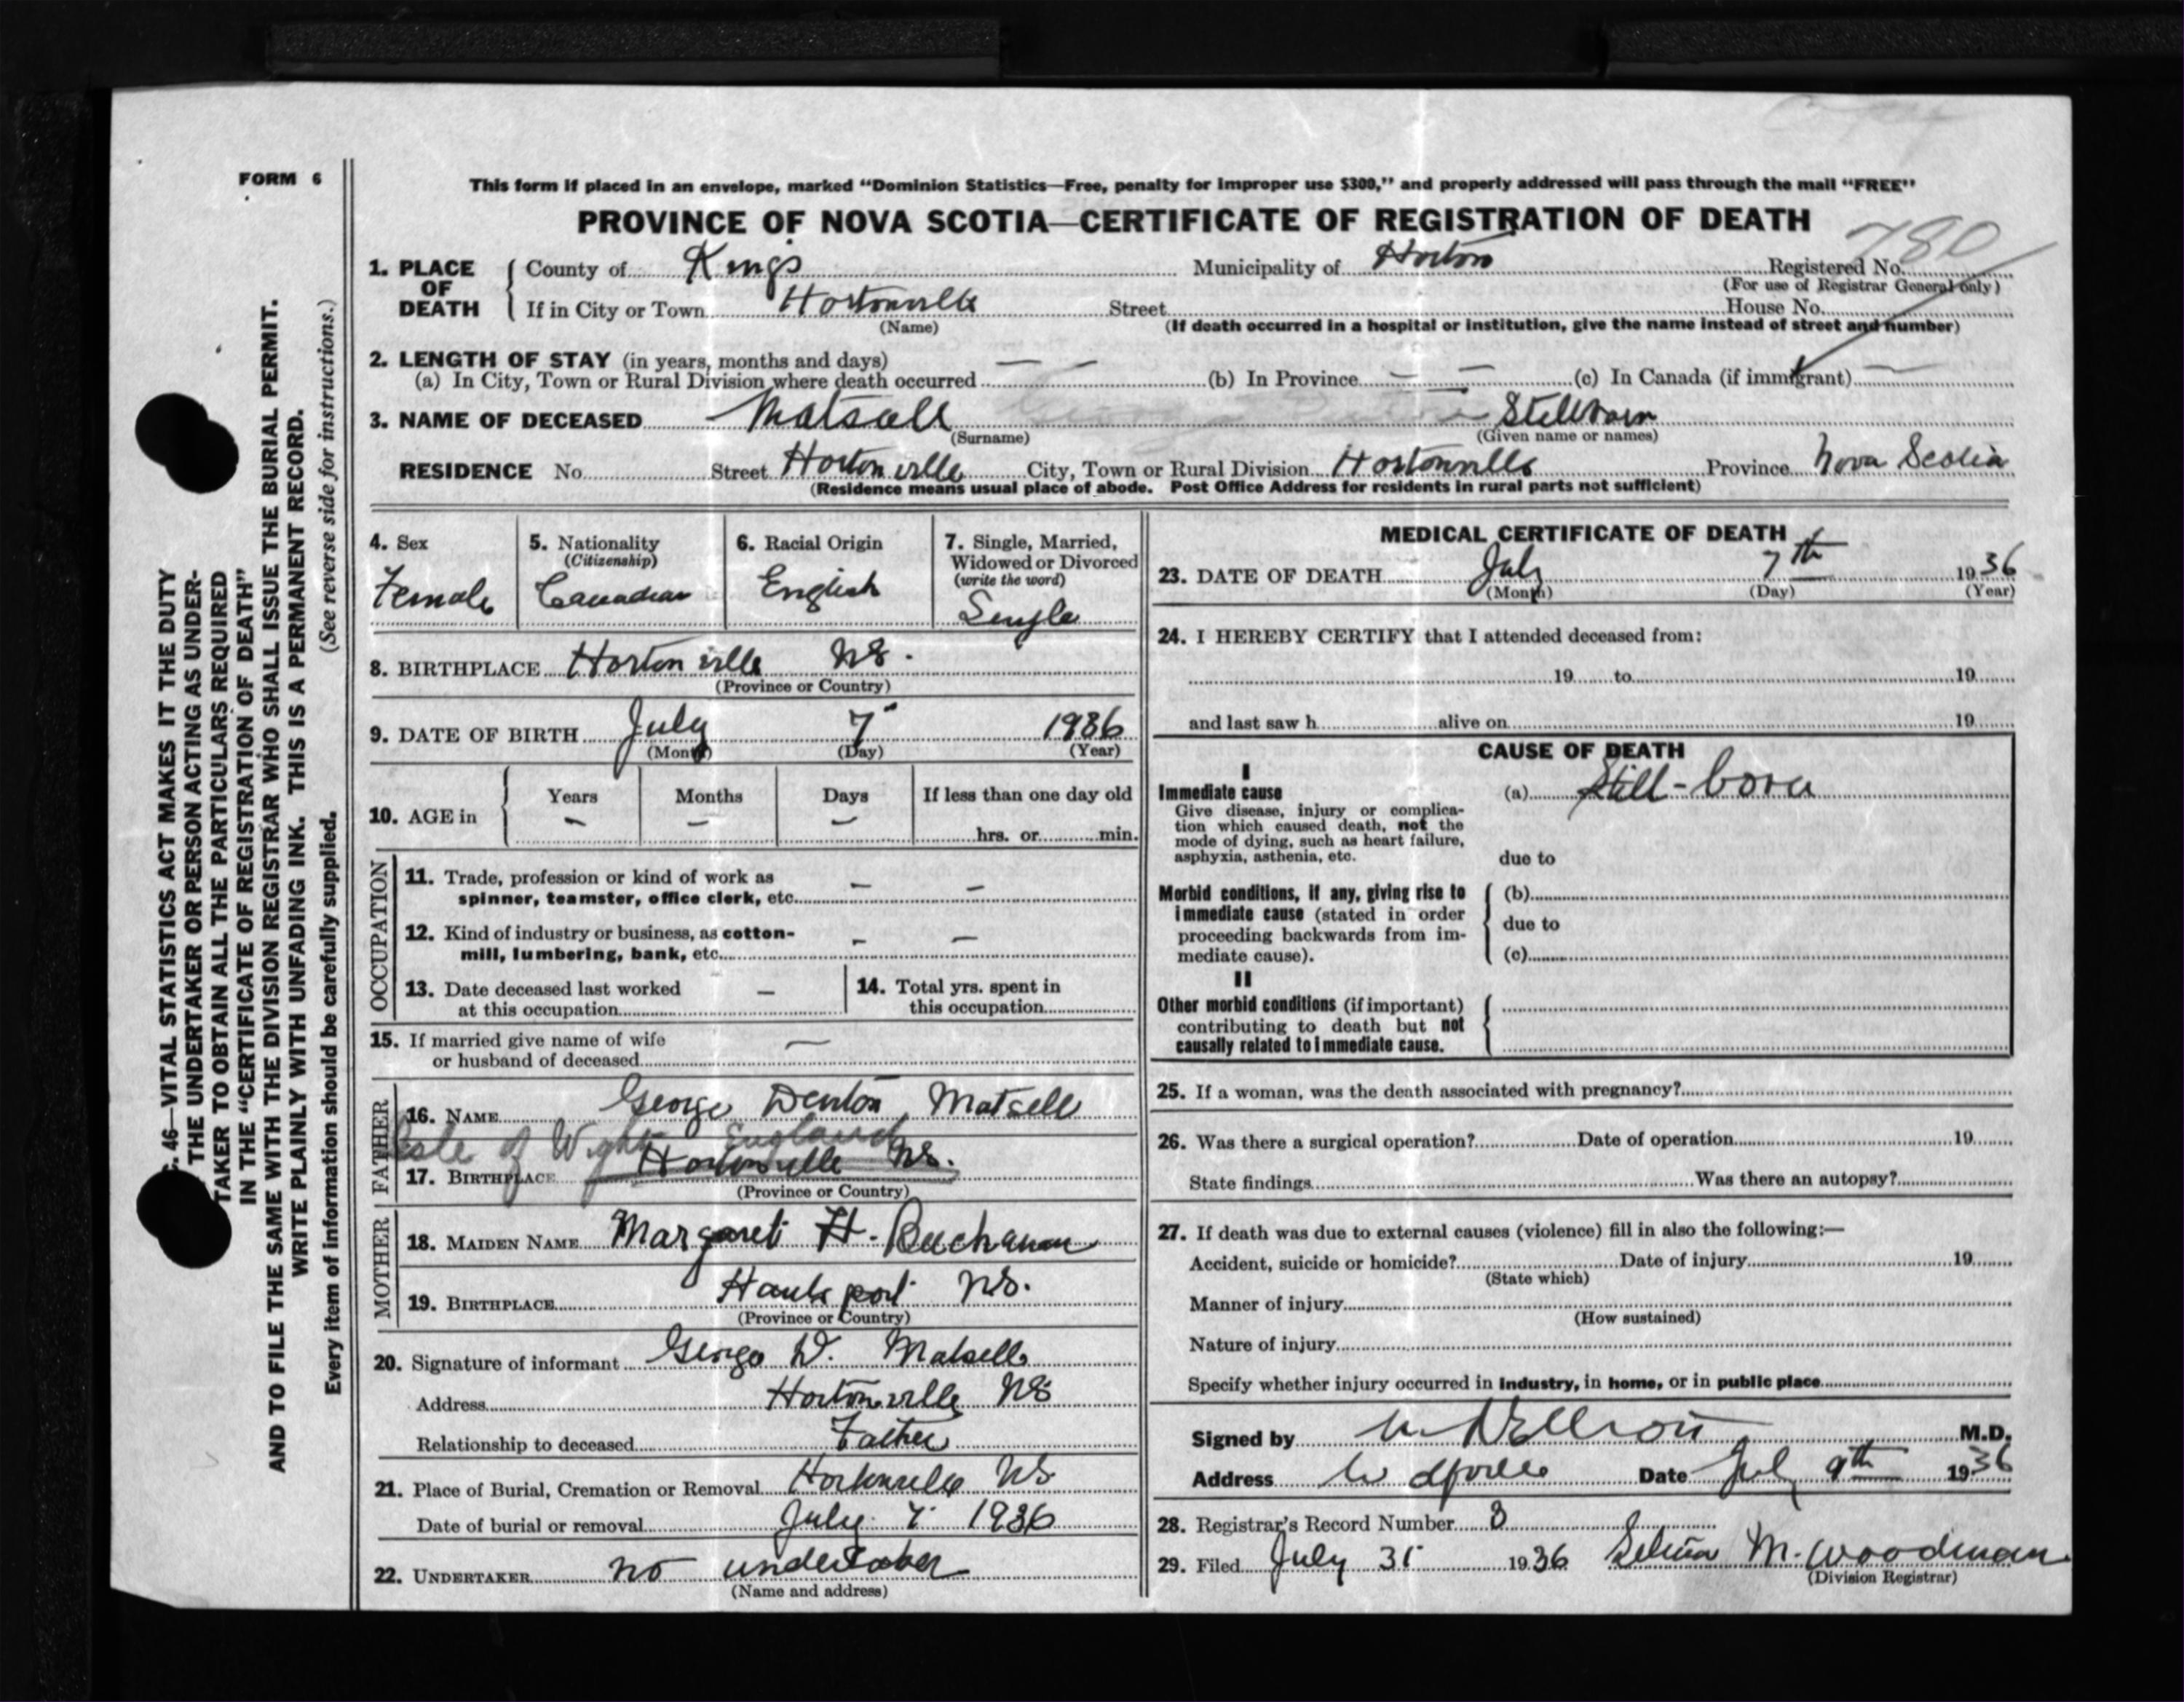 Copy
FORM 6
This form if placed in an envelope, marked “Dominion Statistics—Free, penalty for improper use $300,” and properly addressed will pass through the mail “FREE”
PROVINCE OF NOVA SCOTIA—CERTIFICATE OF REGISTRATION OF DEATH
780
1. PLACE OF DEATH County of Kings Municipality of Horton Registered No.
(For use of Registrar General only)
If in City or Town Hortonville Street House No.
(Name) (If death occurred in a hospital or institution, give the name instead of street and number)
2. LENGTH OF STAY (in years, months and days) — —
(a) In City, Town or Rural Division where death occurred (b) In Province — — (c) In Canada (if immigrant) —
3. NAME OF DECEASED Matsell Stillborn
(Surname) (Given name or names)
RESIDENCE No. Street Hortonville City, Town or Rural Division Hortonville Province Nova Scotia
(Residence means usual place of abode. Post Office Address for residents in rural parts not sufficient)
4. Sex 5. Nationality 6. Racial Origin 7. Single, Married,
(Citizenship) Widowed or Divorced
(write the word)
Female Canadian English Single
8. BIRTHPLACE Hortonville N.S.
(Province or Country)
9. DATE OF BIRTH July 7 1936
(Month) (Day) (Year)
10. AGE in Years Months Days If less than one day old
— — — hrs. or min.
OCCUPATION
11. Trade, profession or kind of work as
spinner, teamster, office clerk, etc. — —
12. Kind of industry or business, as cotton-
mill, lumbering, bank, etc. — —
13. Date deceased last worked — 14. Total yrs. spent in
at this occupation this occupation
15. If married give name of wife —
or husband of deceased
FATHER
16. NAME George Denton Matsell
Isle of Wight England
17. BIRTHPLACE Hortonville N.S.
(Province or Country)
MOTHER
18. MAIDEN NAME Margaret H. Buchanan
19. BIRTHPLACE Hantsport N.S.
(Province or Country)
20. Signature of informant George D. Matsell
Address Hortonville NS
Relationship to deceased Father
21. Place of Burial, Cremation or Removal Hortonville NS
Date of burial or removal July 7 1936
22. UNDERTAKER no undertaker
(Name and address)
MEDICAL CERTIFICATE OF DEATH
23. DATE OF DEATH July 7th 1936
(Month) (Day) (Year)
24. I HEREBY CERTIFY that I attended deceased from:
19 to 19
and last saw h alive on 19
CAUSE OF DEATH
I
Immediate cause (a) Still-born
Give disease, injury or complica-
tion which caused death, not the
mode of dying, such as heart failure,
asphyxia, asthenia, etc. due to
Morbid conditions, if any, giving rise to (b)
immediate cause (stated in order due to
proceeding backwards from im-
mediate cause). (c)
II
Other morbid conditions (if important)
contributing to death but not
causally related to immediate cause.
25. If a woman, was the death associated with pregnancy?
26. Was there a surgical operation? Date of operation 19
State findings Was there an autopsy?
27. If death was due to external causes (violence) fill in also the following:—
Accident, suicide or homicide? Date of injury 19
(State which)
Manner of injury
(How sustained)
Nature of injury
Specify whether injury occurred in industry, in home, or in public place
Signed by M.D.
Address Wolfville Date July 9th 1936
28. Registrar's Record Number 3
29. Filed July 31 1936 Selina M. Woodman
(Division Registrar)
46—VITAL STATISTICS ACT MAKES IT THE DUTY
THE UNDERTAKER OR PERSON ACTING AS UNDER-
TAKER TO OBTAIN ALL THE PARTICULARS REQUIRED
IN THE “CERTIFICATE OF REGISTRATION OF DEATH”
AND TO FILE THE SAME WITH THE DIVISION REGISTRAR WHO SHALL ISSUE THE BURIAL PERMIT.
WRITE PLAINLY WITH UNFADING INK. THIS IS A PERMANENT RECORD.
Every item of information should be carefully supplied. (See reverse side for instructions.)